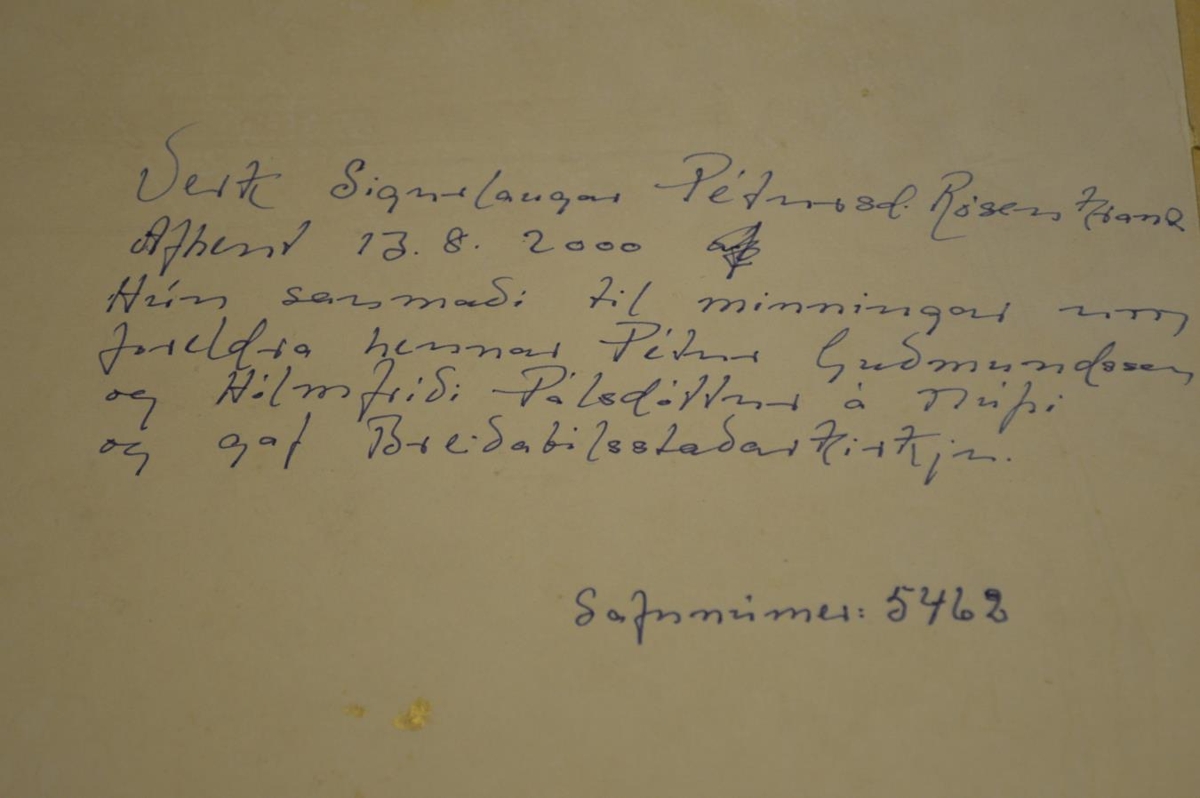 Verk Sigurlaugar Pétursd. Rósenkranz
Afhent 13. 8. 2000
Hún saumaði til minningar um
foreldra hennar Pétur Guðmundsson
og Hólmfríði Pálsdóttur á Núpi
og gaf Breiðabilsstaðarkirkju.
Safnnúmer: 5462